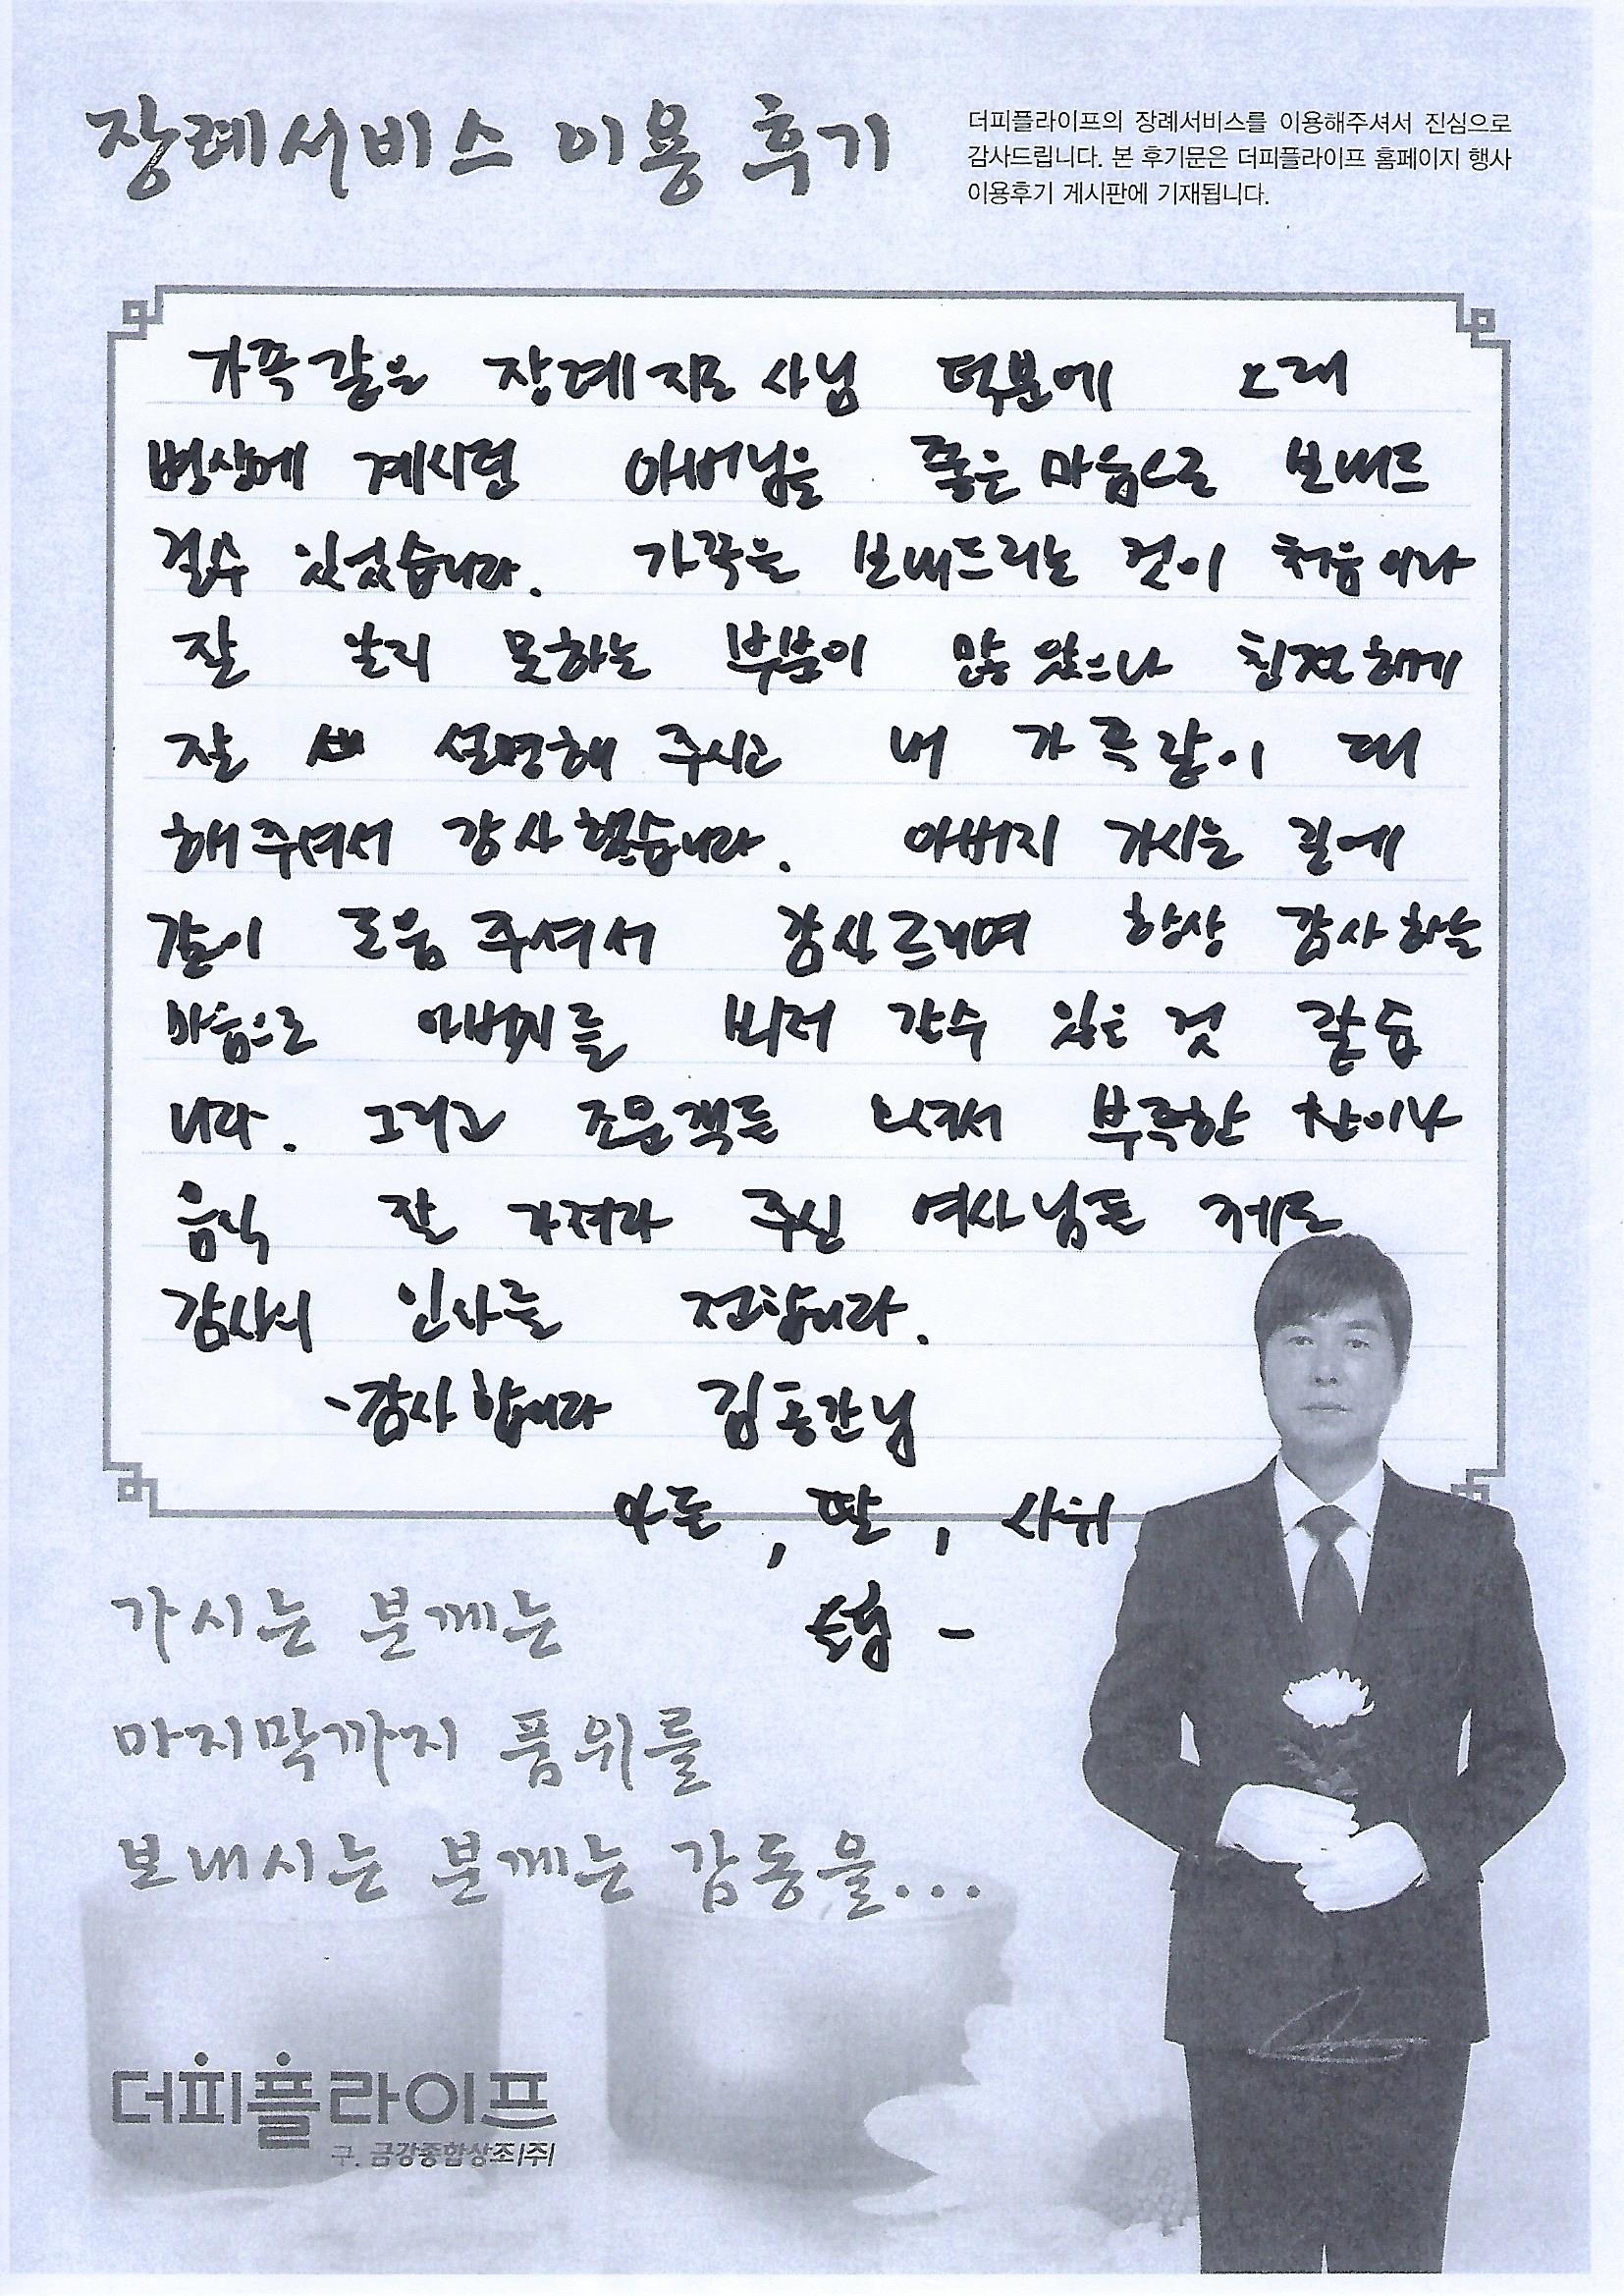 장례서비스 이용 후기
더피플라이프의 장례서비스를 이용해주셔서 진심으로
감사드립니다. 본 후기문은 더피플라이프 홈페이지 행사
이용후기 게시판에 기재됩니다.
가족같은 장례지도사님 덕분에 오래
병상에 계시던 아버님을 좋은 마음으로 보내드
릴수 있었습니다. 가족을 보내드리는 것이 처음이라
잘 알지 못하는 부분이 많았으나 친절하게
잘 설명해 주시고 내 가족같이 대
해주셔서 감사했습니다. 아버지 가시는 길에
같이 도움 주셔서 감사드리며 항상 감사하는
마음으로 아버지를 갈수 있는 것 같습
니다. 그리고 조문객들 부족한 찬이나
음식 잘 가져다 주신 여사님들 께도
감사의 인사를 전합니다.
-감사합니다 님
아들, 딸, 사위
-
가시는 분께는
마지막까지 품위를
보내시는 분께는 감동을...
더피플라이프
구. 금강종합상조(주)